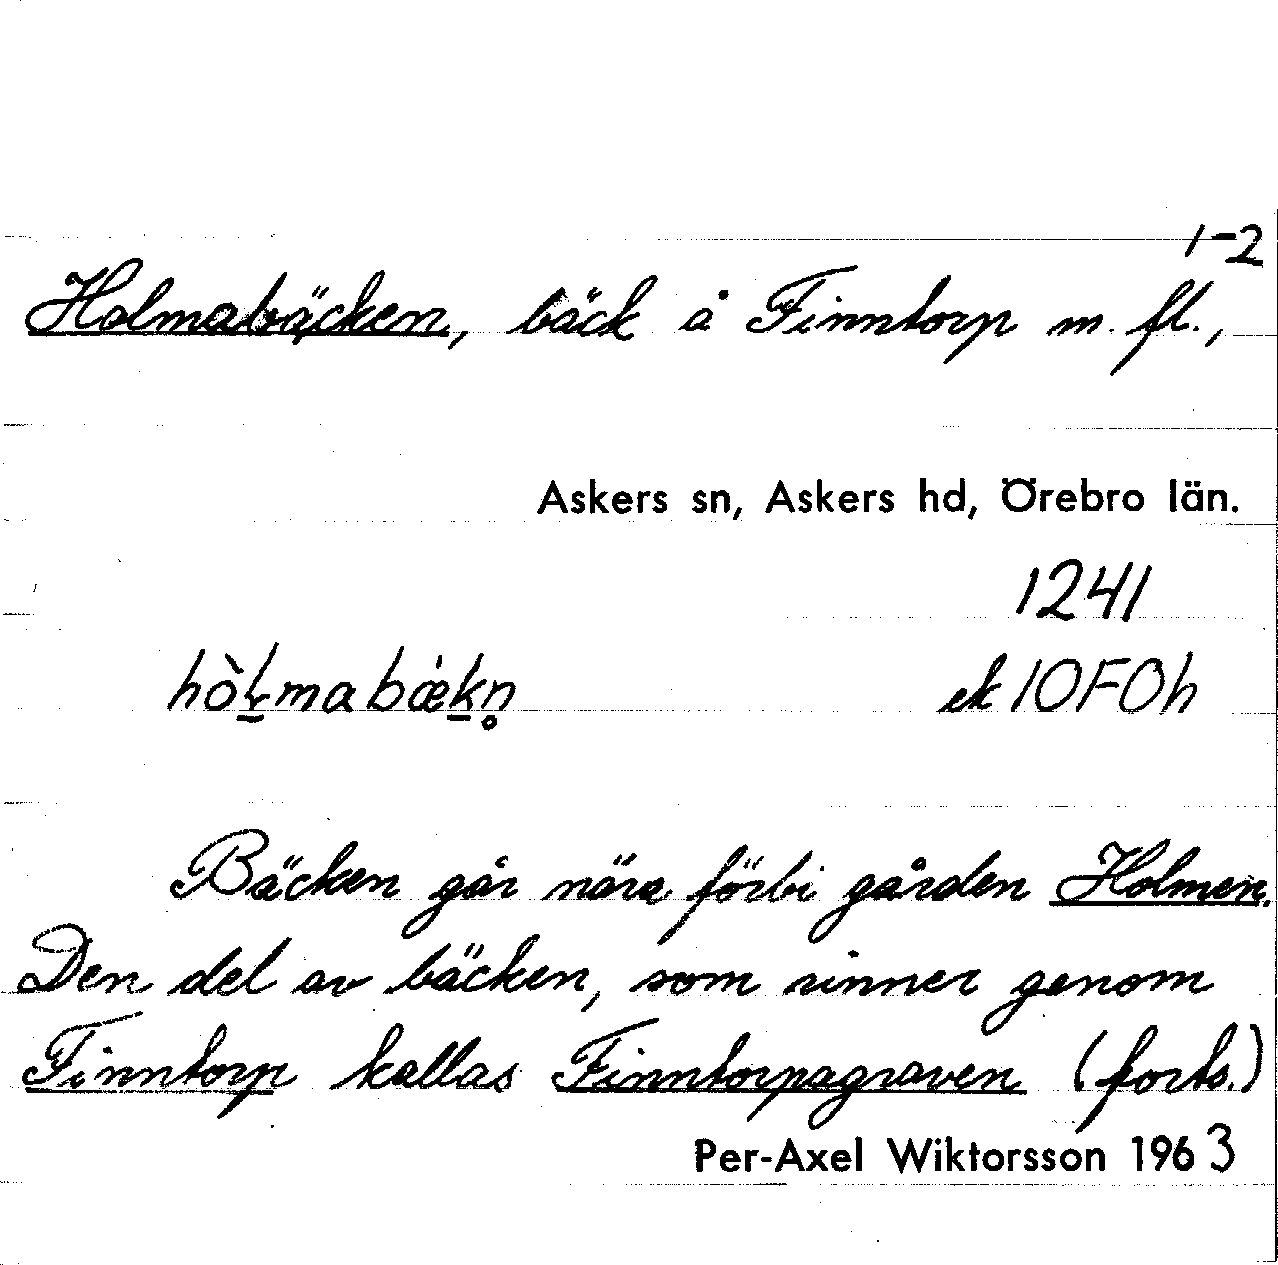 1-2
Holmabäcken, bäck å Finntorp m. fl.,
Askers sn, Askers hd, Örebro län.
1241
hòl̠mabǽk̠n̥ ek 10F0h
Bäcken går nära förbi gården Holmen.
Den del av bäcken, som rinner genom
Finntorp kallas Finntorpagraven (forts.)
Per-Axel Wiktorsson 1963